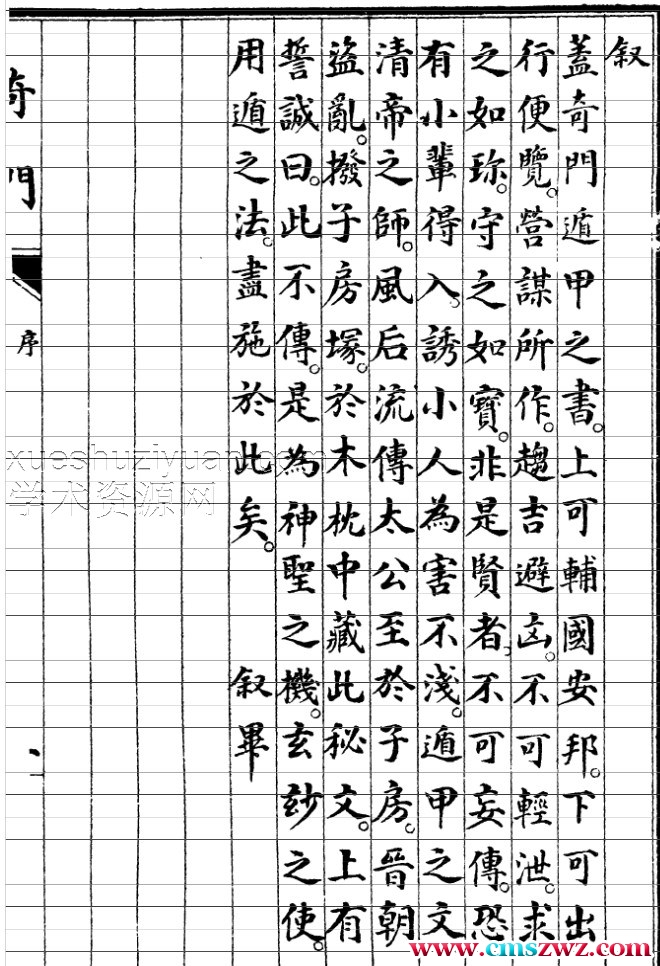 叙
蓋奇門遁甲之書。上可輔國安邦。下可出
行便覽。營謀所作。趨吉避凶。不可輕泄。求
之如珎。守之如寶。非是賢者。不可妄傳。恐
有小輩得入。誘小人為害不淺。遁甲之文
清帝之師。風后流傳太公至於子房。晉朝
盜亂。撥子房塚。於木枕中藏此秘文。上有
誓誠曰。此不傳。是為神聖之機。玄玅之使。
用遁之法。盡施於此矣。 叙畢
奇門 序 一
xueshuziyuan.com
学术资源网
www.cmszwz.com